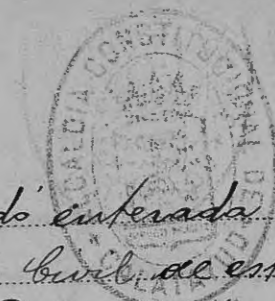 ALCALDIA CONSTITUCIONAL DE CALATAYUD
dó enterada
Civil de es